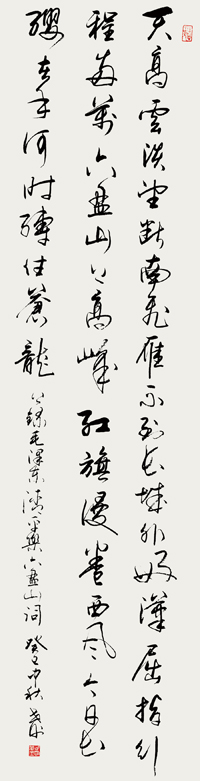 天高雲淡望斷南飛雁不到長城非好漢屈指行
程萬六盤山上高峰紅旗漫卷西風今日長
纓在手何時縛住蒼龍
錄毛澤東清平樂六盤山詞 癸巳中秋